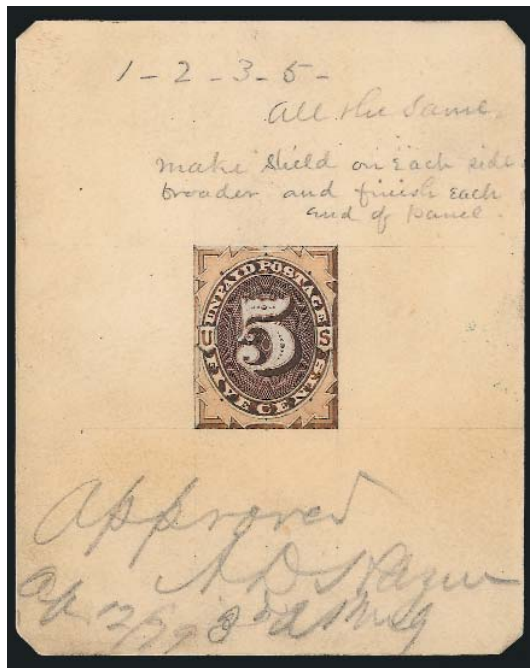 1 - 2 - 3 - 5 -
All the Same.
make Shield on Each side
broader and finish Each
End of Panel
UNPAID POSTAGE
U 5 S
FIVE CENTS
Approved
A D Hazen
Ap 12/79 3d A P M G